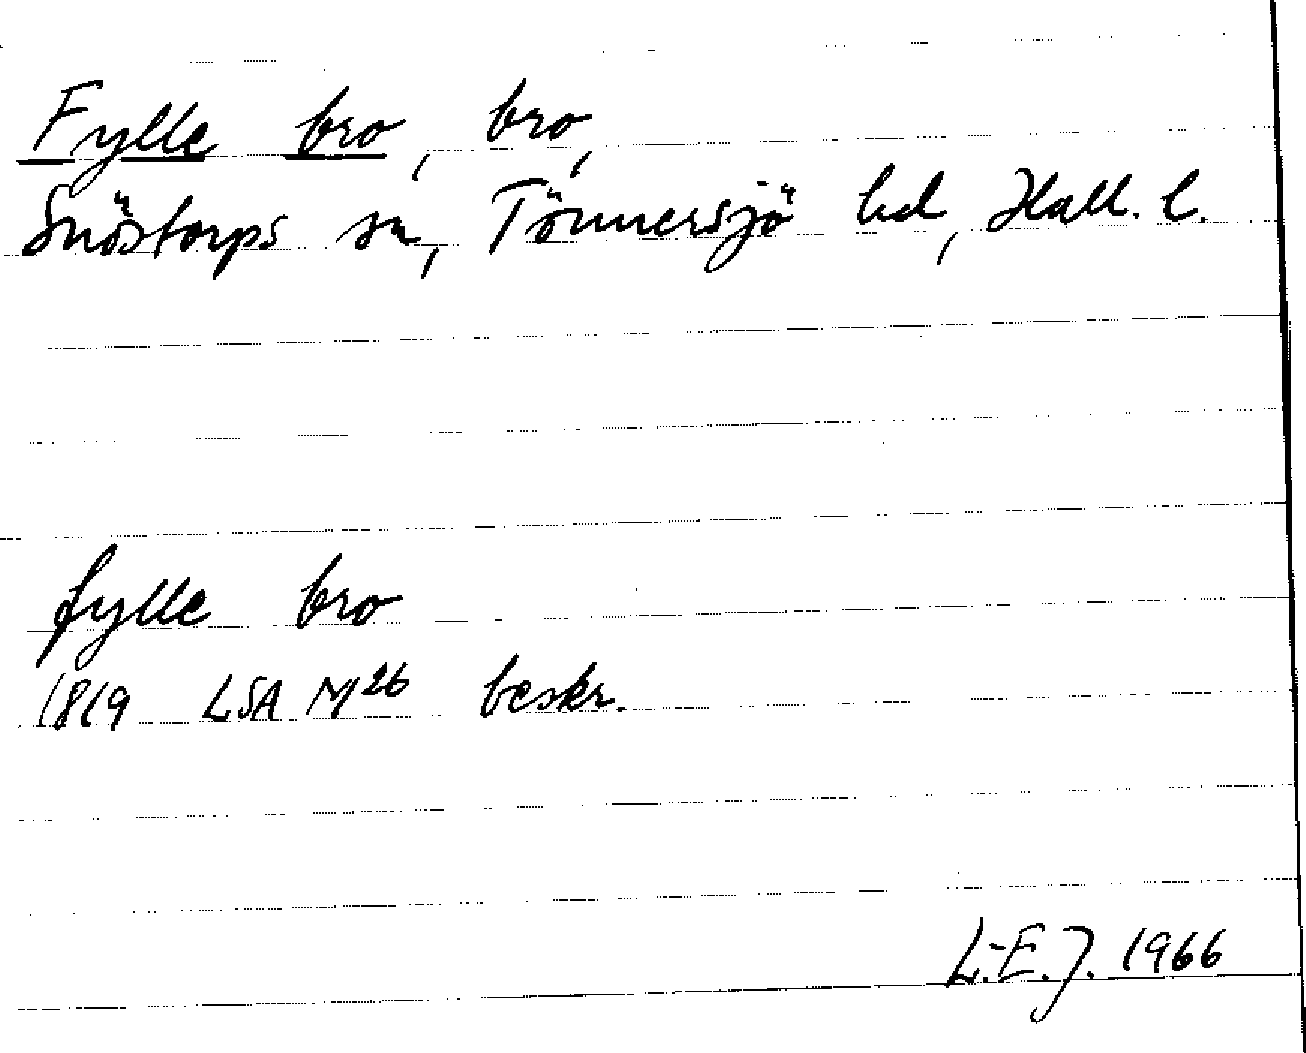 Fylle bro, bro,
Snöstorps sn, Tönnersjö hd, Hall. l.
fylle bro
1819 LSA N26 beskr.
L.-E. J. 1966